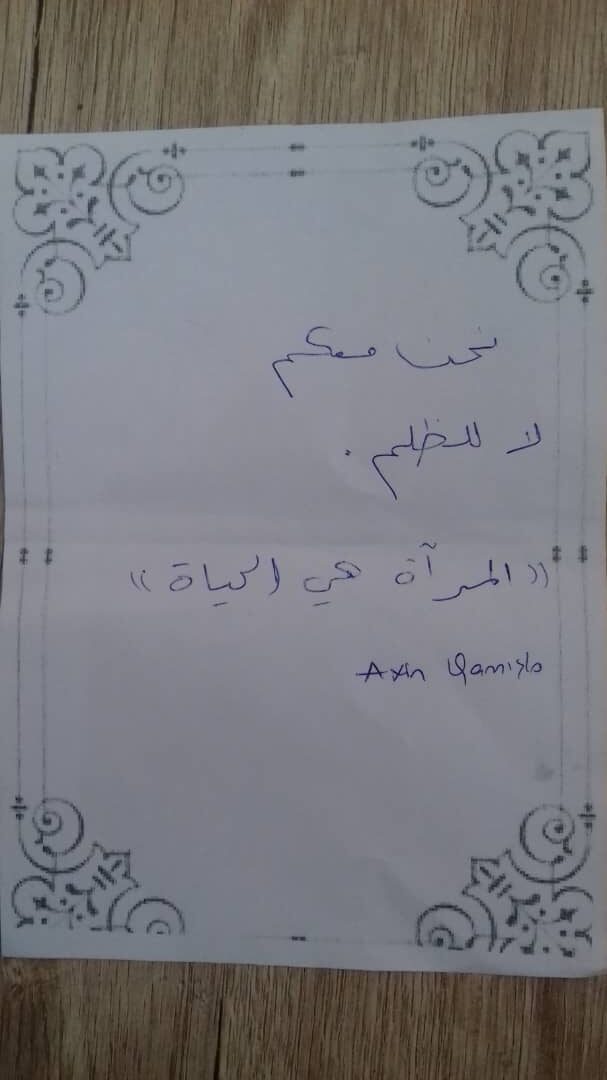 نحن معكم
لا للظلم .
((المرآة هي الحياة))
Axin Qamişlo